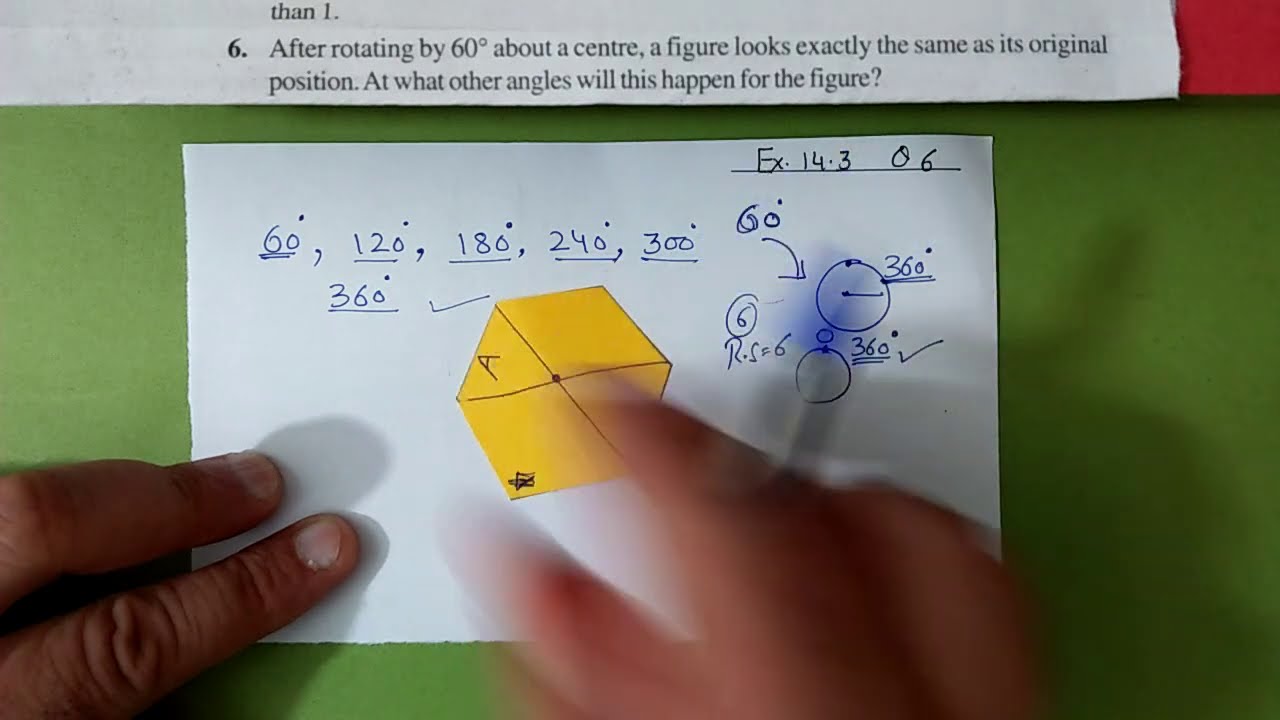 than 1.
6. After rotating by 60° about a centre, a figure looks exactly the same as its original
position. At what other angles will this happen for the figure?
Ex. 14.3 Q6
60°, 120°, 180°, 240°, 300°
360°
60°
360°
6
R.S=6
360°
A